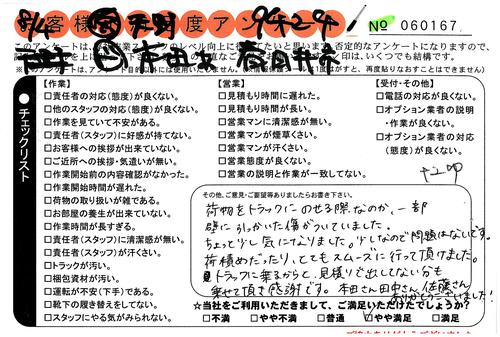 お客様満足度アンケート
No 060167
【作業】
□責任者の対応(態度)が良くない。
□他のスタッフの対応(態度)が良くない。
□作業を見ていて不安がある。
□責任者(スタッフ)に好感が持てない。
□お客様への挨拶が出来ていない。
□ご近所への挨拶・気遣いが無い。
□作業開始前の内容確認がなかった。
□作業開始時間が遅れた。
□荷物の取り扱いが雑である。
□お部屋の養生が出来ていない。
□作業時間が長すぎる。
□責任者(スタッフ)に清潔感が無い。
□責任者(スタッフ)が汗くさい。
□トラックが汚い。
□梱包資材が汚い。
□運転が不安(下手)である。
□靴下の履き替えをしてない。
□スタッフにやる気がみられない。
【営業】
□見積もり時間に遅れた。
□見積もり時間が長い。
□営業マンに清潔感が無い。
□営業マンが煙草くさい。
□営業マンが汗くさい。
□営業態度が良くない。
□営業の説明と作業が一致してない。
【受付・その他】
□電話の対応が良くない。
□オプション業者の説明
・作業が良くない。
□オプション業者の対応
(態度)が良くない。
チェックリスト
その他、ご意見・ご要望等ありましたらお書き下さい。
荷物をトラックにのせる際なのか、一部
壁に引っかいた傷がついていました。
ちょっと少し気になりました。少しなので問題はないです。
荷積めだったり、とてもスムーズに行って頂けました。
トラックに乗るからと、見積りで出してない分も
乗せて頂き感謝です。本田さん田中さん、佐藤さん
ありがとうございました!
★当社をご利用いただきまして、ご満足いただけたでしょうか?
□不満 □やや不満 □普通 □やや満足 □満足